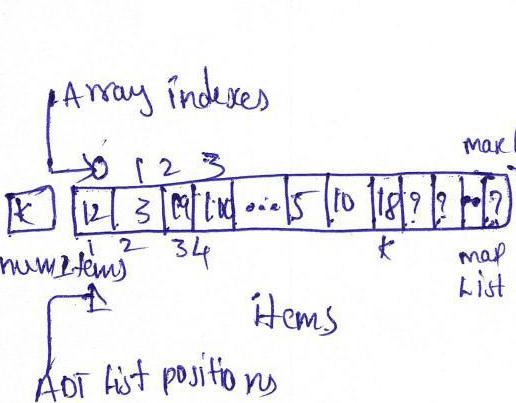 Array indexes
0 1 2 3 max
K 12 3 19 100 ... 5 10 18 ? ? ... ?
1 2 3 4 K map
numItems List
items
ADT list positions